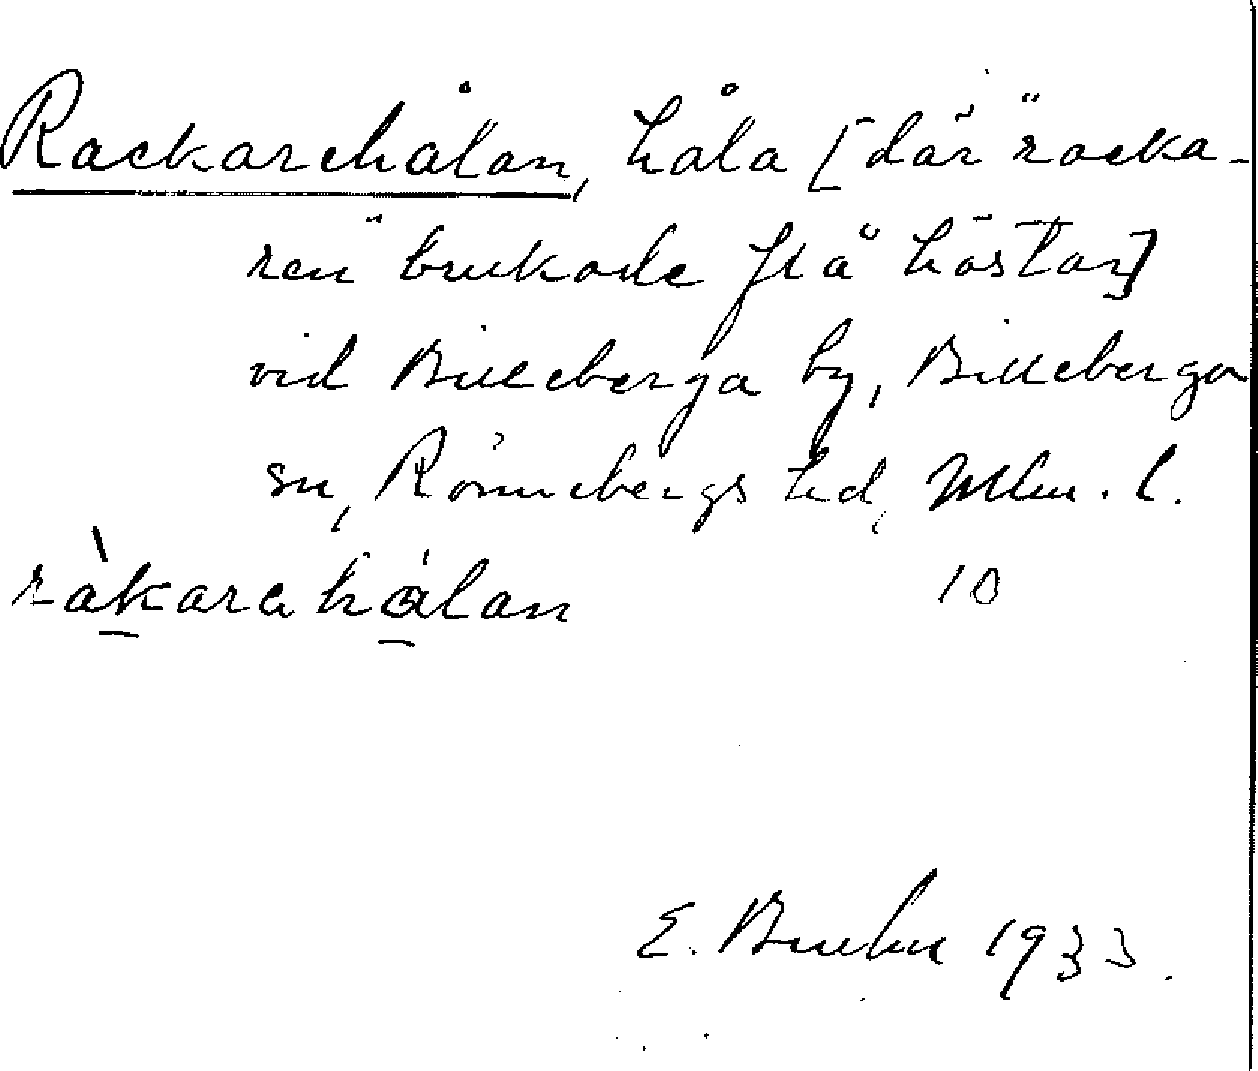 Rackarehålan, håla [där "racka-
ren" brukade flå hästar]
vid Billeberga by, Billeberga
sn, Rönnebergs hd, Mlm. l.
ràkarahålan 10
E. Bruhn 1933.